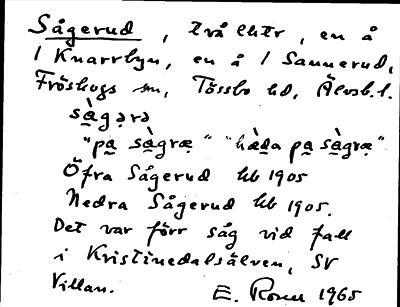 Sågerud, två lhtr, en å
/ Knarrbyn, en å / Sannerud,
Fröskogs sn, Tössbo hd, Älvsb. l.
sàgǝrǝ
"pa sàgræ" "hàda pa sàgræ".
Öfra Sågerud hb 1905
Nedra Sågerud hb 1905.
Det var förr såg vid fall
i Kristinedalsälven, SV
Villan. E. Rome 1965